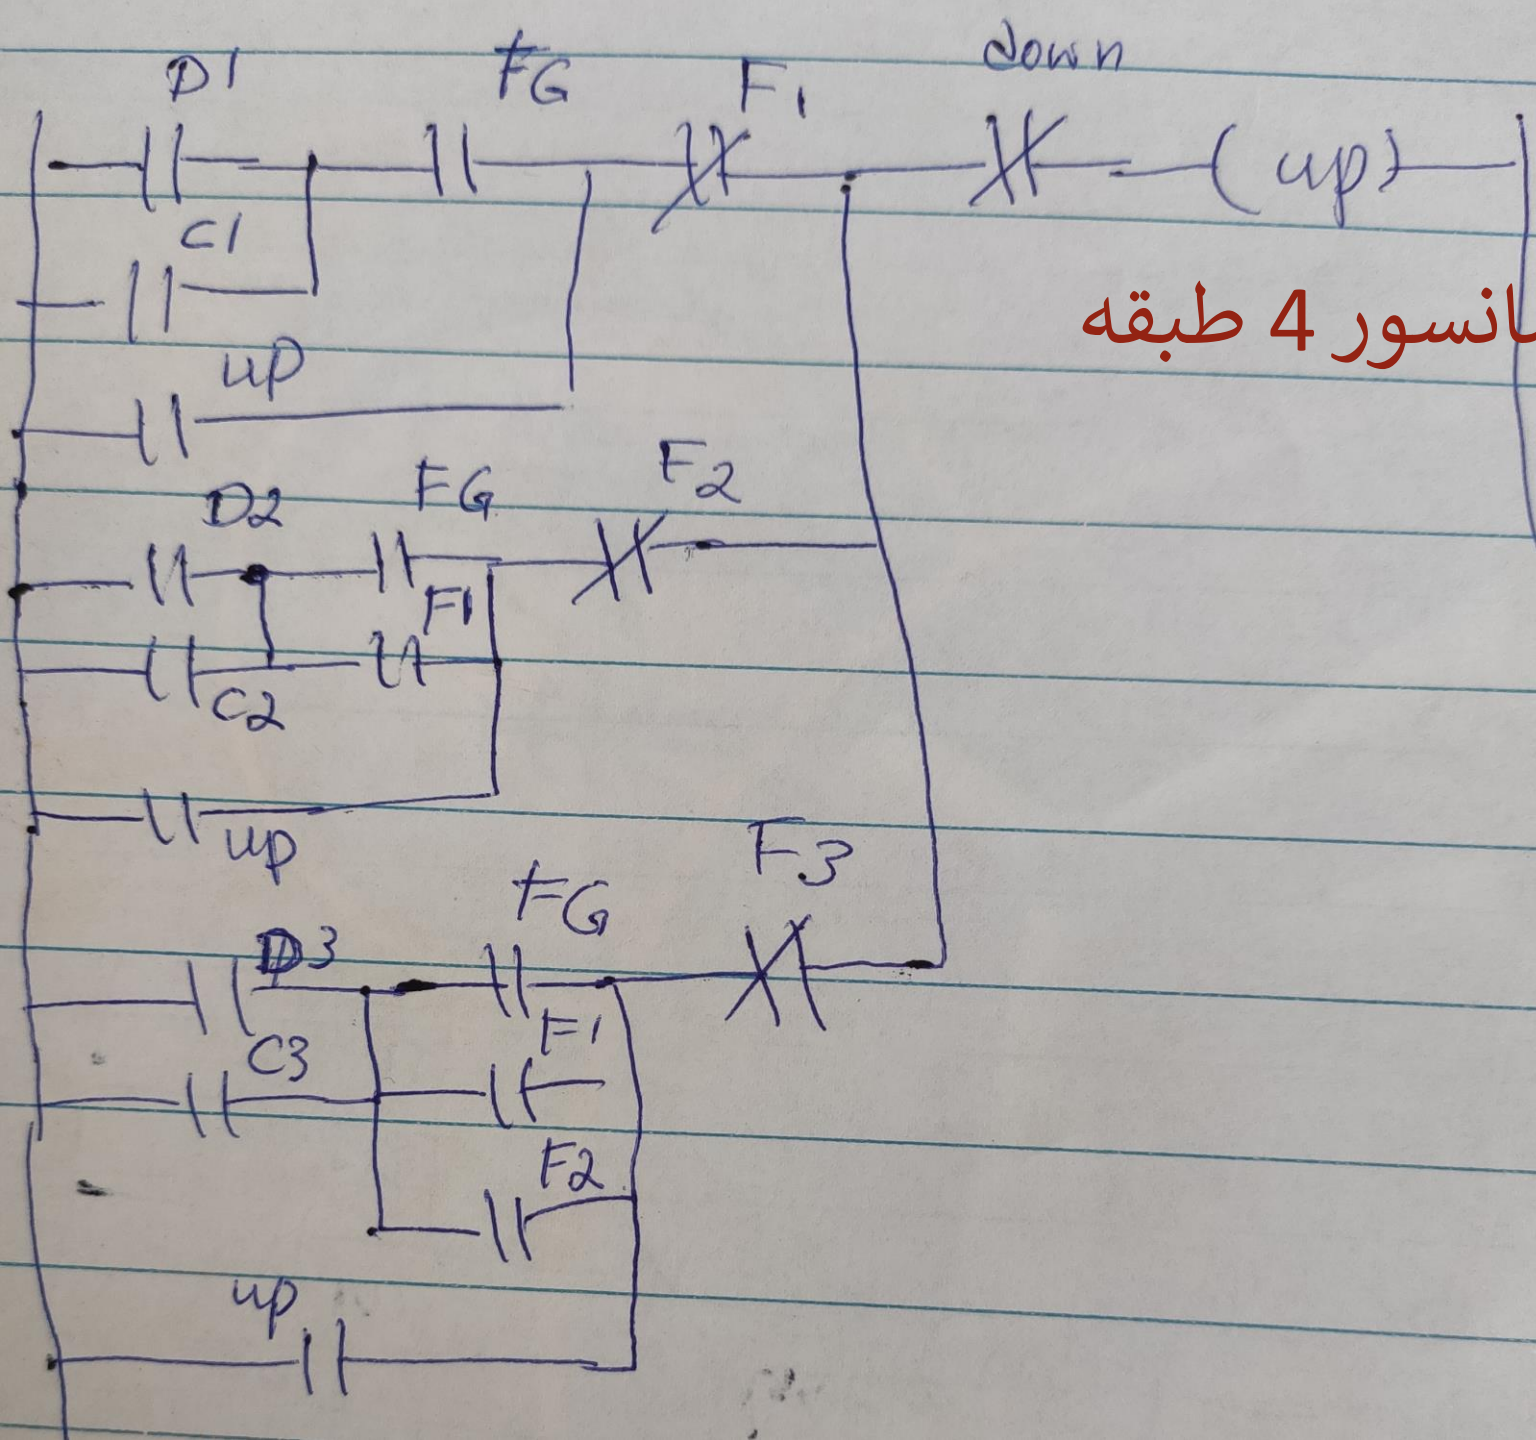 D1 FG F1 down
(up)
C1
انسور 4 طبقه
up
D2 FG F2
F1
C2
up
F3
FG
D3
F1
C3
F2
up